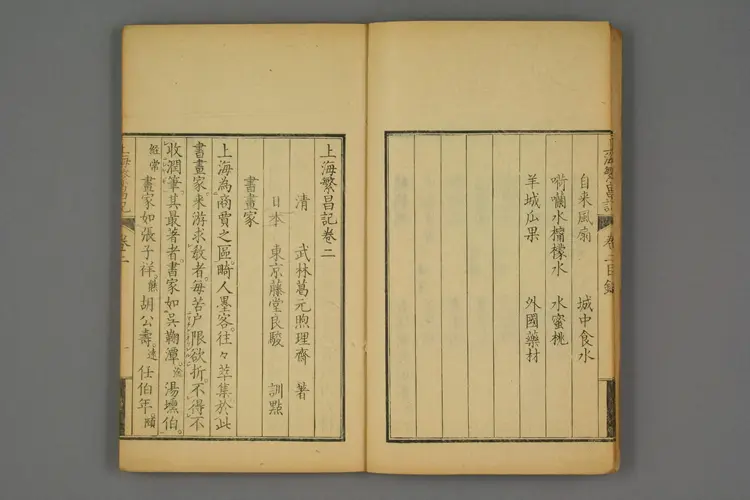 上海繁昌記 卷二目錄
自来風扇 城中食水
嗬囒水檸檬水 水蜜桃
羊城瓜果 外國藥材
上海繁昌記卷二
清 武林葛元煦理齋 著
日本 東京藤堂良駿 訓點
書畫家
上海為商賈之區畸人墨客往々萃集於此
書畫家来游求教者每苦户限欲折不得不
收潤筆其最著者書家如吳鞠潭淦湯壎伯
經常畫家如張子祥熊胡公壽遠任伯年
上海繁昌記 卷二